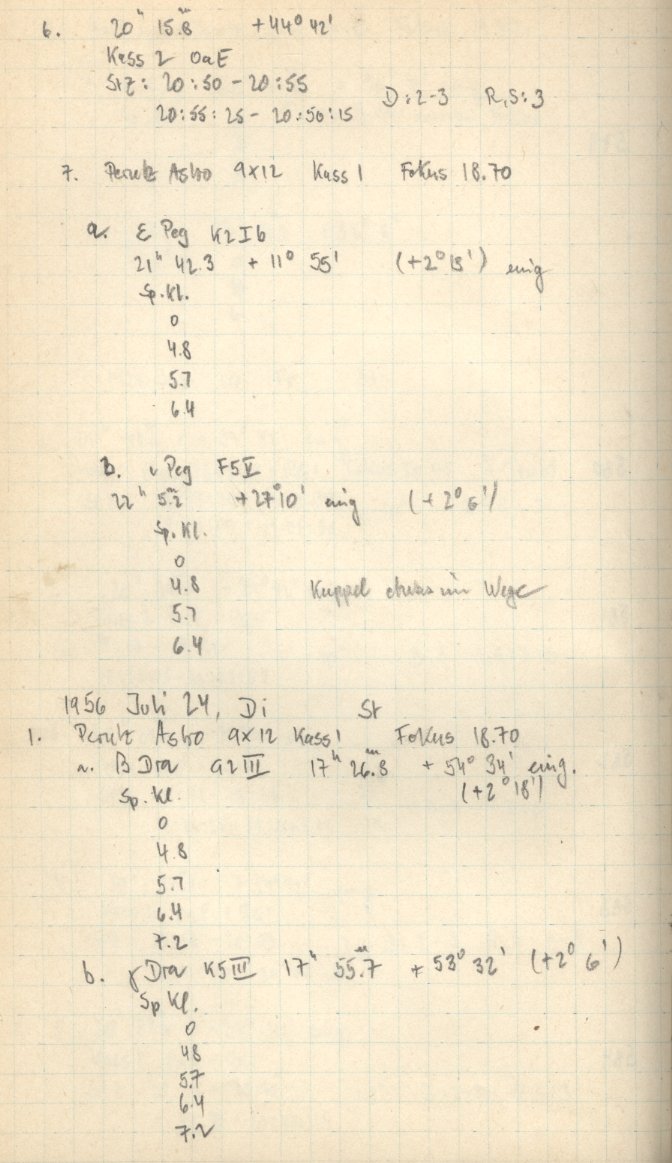 6. 20ʰ 15.8ᵐ +44° 42'
Kass 2 OaE
StZ: 20:50 - 20:55
D:2-3 R,S:3
20:55:25 - 20:50:15
7. Perutz Astro 9x12 Kass 1 Fokus 18.70
a. ε Peg K2Ib
21ʰ 42.3 +11° 55' (+2° 13') einig
Sp.Kl.
0
4.8
5.7
6.4
b. ι Peg F5V
22ʰ 5.2ᵐ +27°10' einig (+2° 6')
Sp.Kl.
0
4.8
Kuppel etwas im Wege
5.7
6.4
1956 Juli 24, Di St
1. Perutz Astro 9x12 Kass 1 Fokus 18.70
a. β Dra G2III 17ʰ 26.8ᵐ +54° 34' einig.
Sp.Kl. (+2° 18')
0
4.8
5.7
6.4
7.2
b. γ Dra K5III 17ʰ 55.7ᵐ +53° 32' (+2° 6')
Sp Kl.
0
48
5.7
6.4
7.2